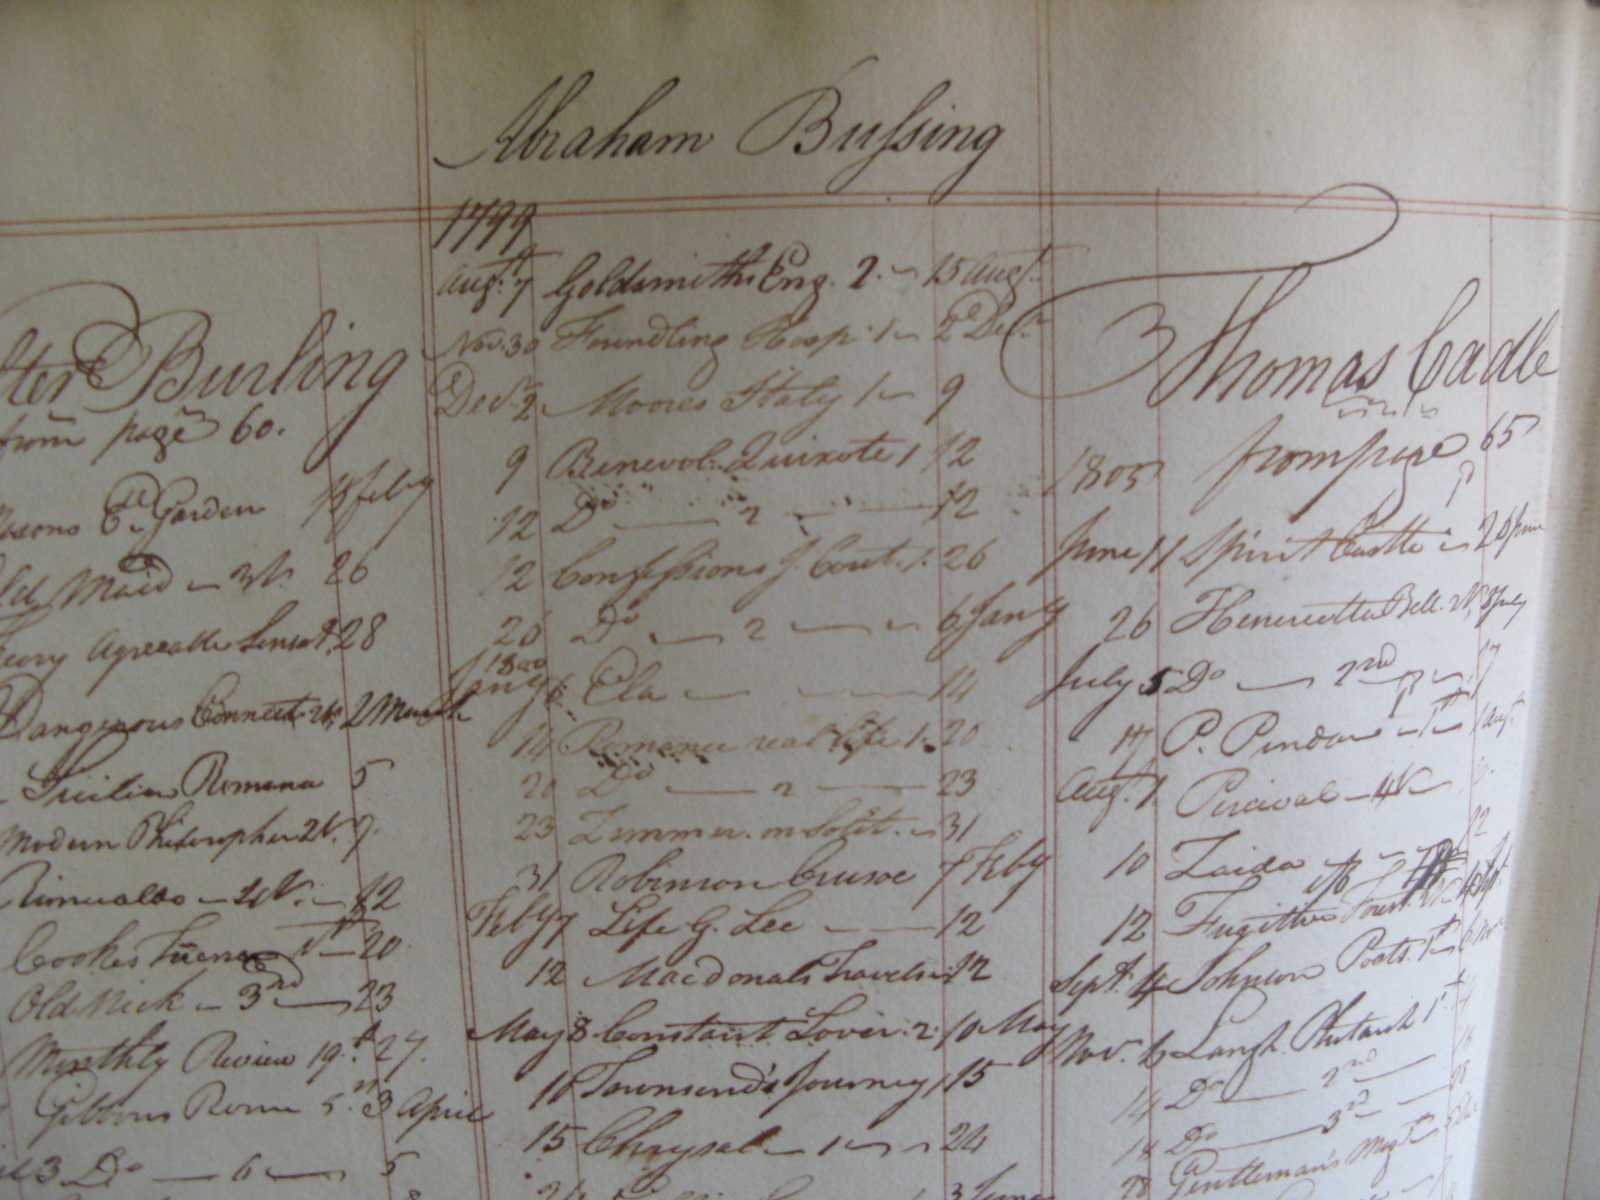 Abraham Bussing
1799
Augt. 7 Goldsmiths Eng. 2. 15 Augt.
Nov. 30 Foundling Hosp. 1 2d Decr.
Dec. 2 Moores Italy 1 9
9 Benevol. Quixote 1 12
12 Do 2 12
12 Confessions J. Cout. 1. 26
26 Do 2 6 Jany
1800
Jany 6 Ela 14
14 Romance real life 1. 20
20 Do 2 23
23 Zimmer. on Solit. 31
31 Robinson Crusoe 7 Feby
Feby 7 Life G. Lee 12
12 Macdonals Travels 12
May 8 Constant Lover. 2 10 May
10 Townsend's Journey 1 15
15 Chrysal 1 24
24
Burling
from page 60.
Garden 18 feby
Old Maid 26
Agreeable 28
Dangerous Connect. 2 March
Sicilian Romance 5
Modern Philosopher 2V. 7.
Rimualdo 12
Cookes 20
Old Nick 3rd 23
Monthly Review 19. 27.
Gibbons Rome 5. 3 April
3 Do 6 5
Thomas Cadle
from page 65
1805
June 11 Spirit Castle 26 June
26 Henrietta Bell. 5 July
July 5 Do 2nd 17
17 P. Pindar 1st 1 Augt.
Augt. 1. Percival 4V
10 Zaida 12
12 Fugitive Forest 4 Sept.
Sept. 4 Johnson Poets. 1st 6 Nov.
Nov. 6 Langh. Plutarch 1st 14
14 Do 2nd 18
18 Do 3rd 28
28 Gentleman's Mag.